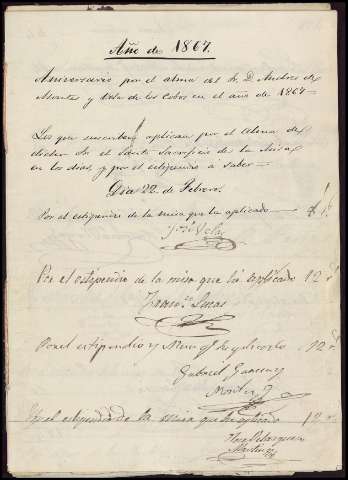 Año de 1867.
Aniversario por el alma del Sr. D. Andres de
Montes y de los Cobos en el año de 1867
Los que suscriben aplican por el Alma de
dicho Sr. el Santo Sacrificio de la Misa
en los dias, y por el estipendio a saber
Dia 22 de Febrero.
Por el estipendio de la misa que ha aplicado
José Velez
Por el estipendio de la misa que há aplicado 12 r.
Franco. Lucas
Por el estipendio y Misa q. he aplicado 12 r.
Gabriel
Montes
Por el estipendio de la misa que ha aplicado 12 r.
Velazquez
Martinez